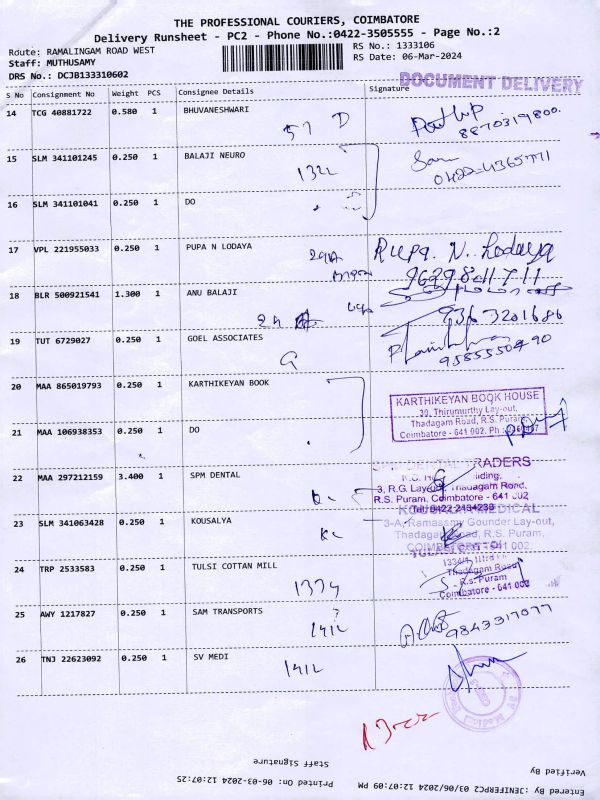 THE PROFESSIONAL COURIERS, COIMBATORE
Delivery Runsheet - PC2 - Phone No.:0422-3505555 - Page No.:2
Route: RAMALINGAM ROAD WEST
RS No.: 1333106
Staff: MUTHUSAMY
RS Date: 06-Mar-2024
DRS No.: DCJB133310602
DOCUMENT DELIVERY
S No Consignment No Weight PCS Consignee Details Signature
14 TCG 40881722 0.580 1 BHUVANESHWARI
57 D
8870319800
15 SLM 341101245 0.250 1 BALAJI NEURO
1322
0422-4365771
16 SLM 341101041 0.250 1 DO
17 VPL 221955033 0.250 1 PUPA N LODAYA
Rupa. N. Lodaya
9629801711
18 BLR 500921541 1.300 1 ANU BALAJI
9363201686
19 TUT 6729027 0.250 1 GOEL ASSOCIATES
G
20 MAA 865019793 0.250 1 KARTHIKEYAN BOOK
KARTHIKEYAN BOOK HOUSE
30, Thirumurthy Lay-out,
Thadagam Road, R.S. Puram,
Coimbatore - 641 002. Ph :
21 MAA 106938353 0.250 1 DO
22 MAA 297212159 3.400 1 SPM DENTAL
SPM DENTAL TRADERS
3, R.G. Layout, Thadagam Road,
R.S. Puram, Coimbatore - 641 002
Tel: 0422 2434239
23 SLM 341063428 0.250 1 KOUSALYA
KL
MEDICAL
3-A, Ramasamy Gounder Lay-out,
Thadagam Road, R.S. Puram,
COIMBATORE - 641 002.
24 TRP 2533583 0.250 1 TULSI COTTAN MILL
1334
Thadagam Road
R.s. Puram
Coimbatore - 641 002
25 AWY 1217827 0.250 1 SAM TRANSPORTS
?
141L
9843317077
26 TNJ 22623092 0.250 1 SV MEDI
141L
Staff Signature
Verified By
Printed On: 06-03-2024 12:07:25
Entered By :JENIFERPC2 03/06/2024 12:07:09 PM